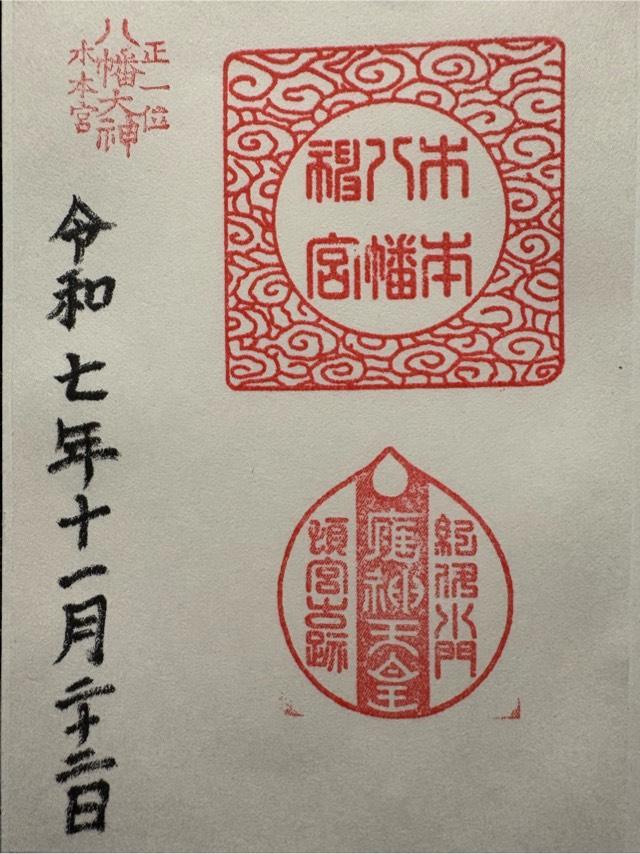 正一位
八幡大神
木本宮
木本
八幡
神宮
紀伊水門
應神天皇
頓宮古跡
令和七年十一月二十二日